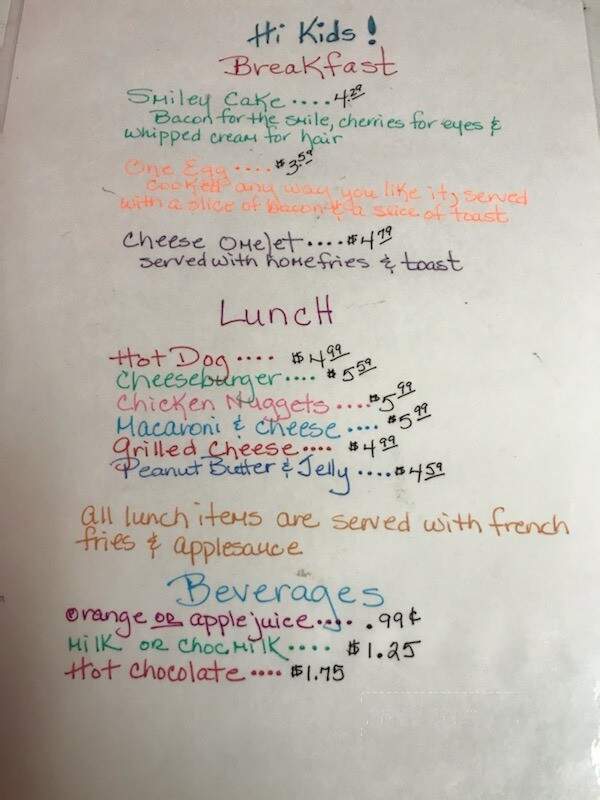 Hi Kids!
Breakfast
Smiley Cake .... 4.29
Bacon for the smile, cherries for eyes &
whipped cream for hair
One Egg .... $3.59
cooked any way you like it, served
with a slice of bacon & a slice of toast
Cheese Omelet .... $4.79
served with homefries & toast
Lunch
Hot Dog .... $4.99
Cheeseburger .... $5.59
Chicken Nuggets .... $5.99
Macaroni & cheese .... $5.99
Grilled Cheese .... $4.99
Peanut Butter & Jelly .... $4.59
all lunch items are served with french
fries & applesauce
Beverages
orange or apple juice .... .99¢
Milk or Choc Milk .... $1.25
Hot chocolate .... $1.75